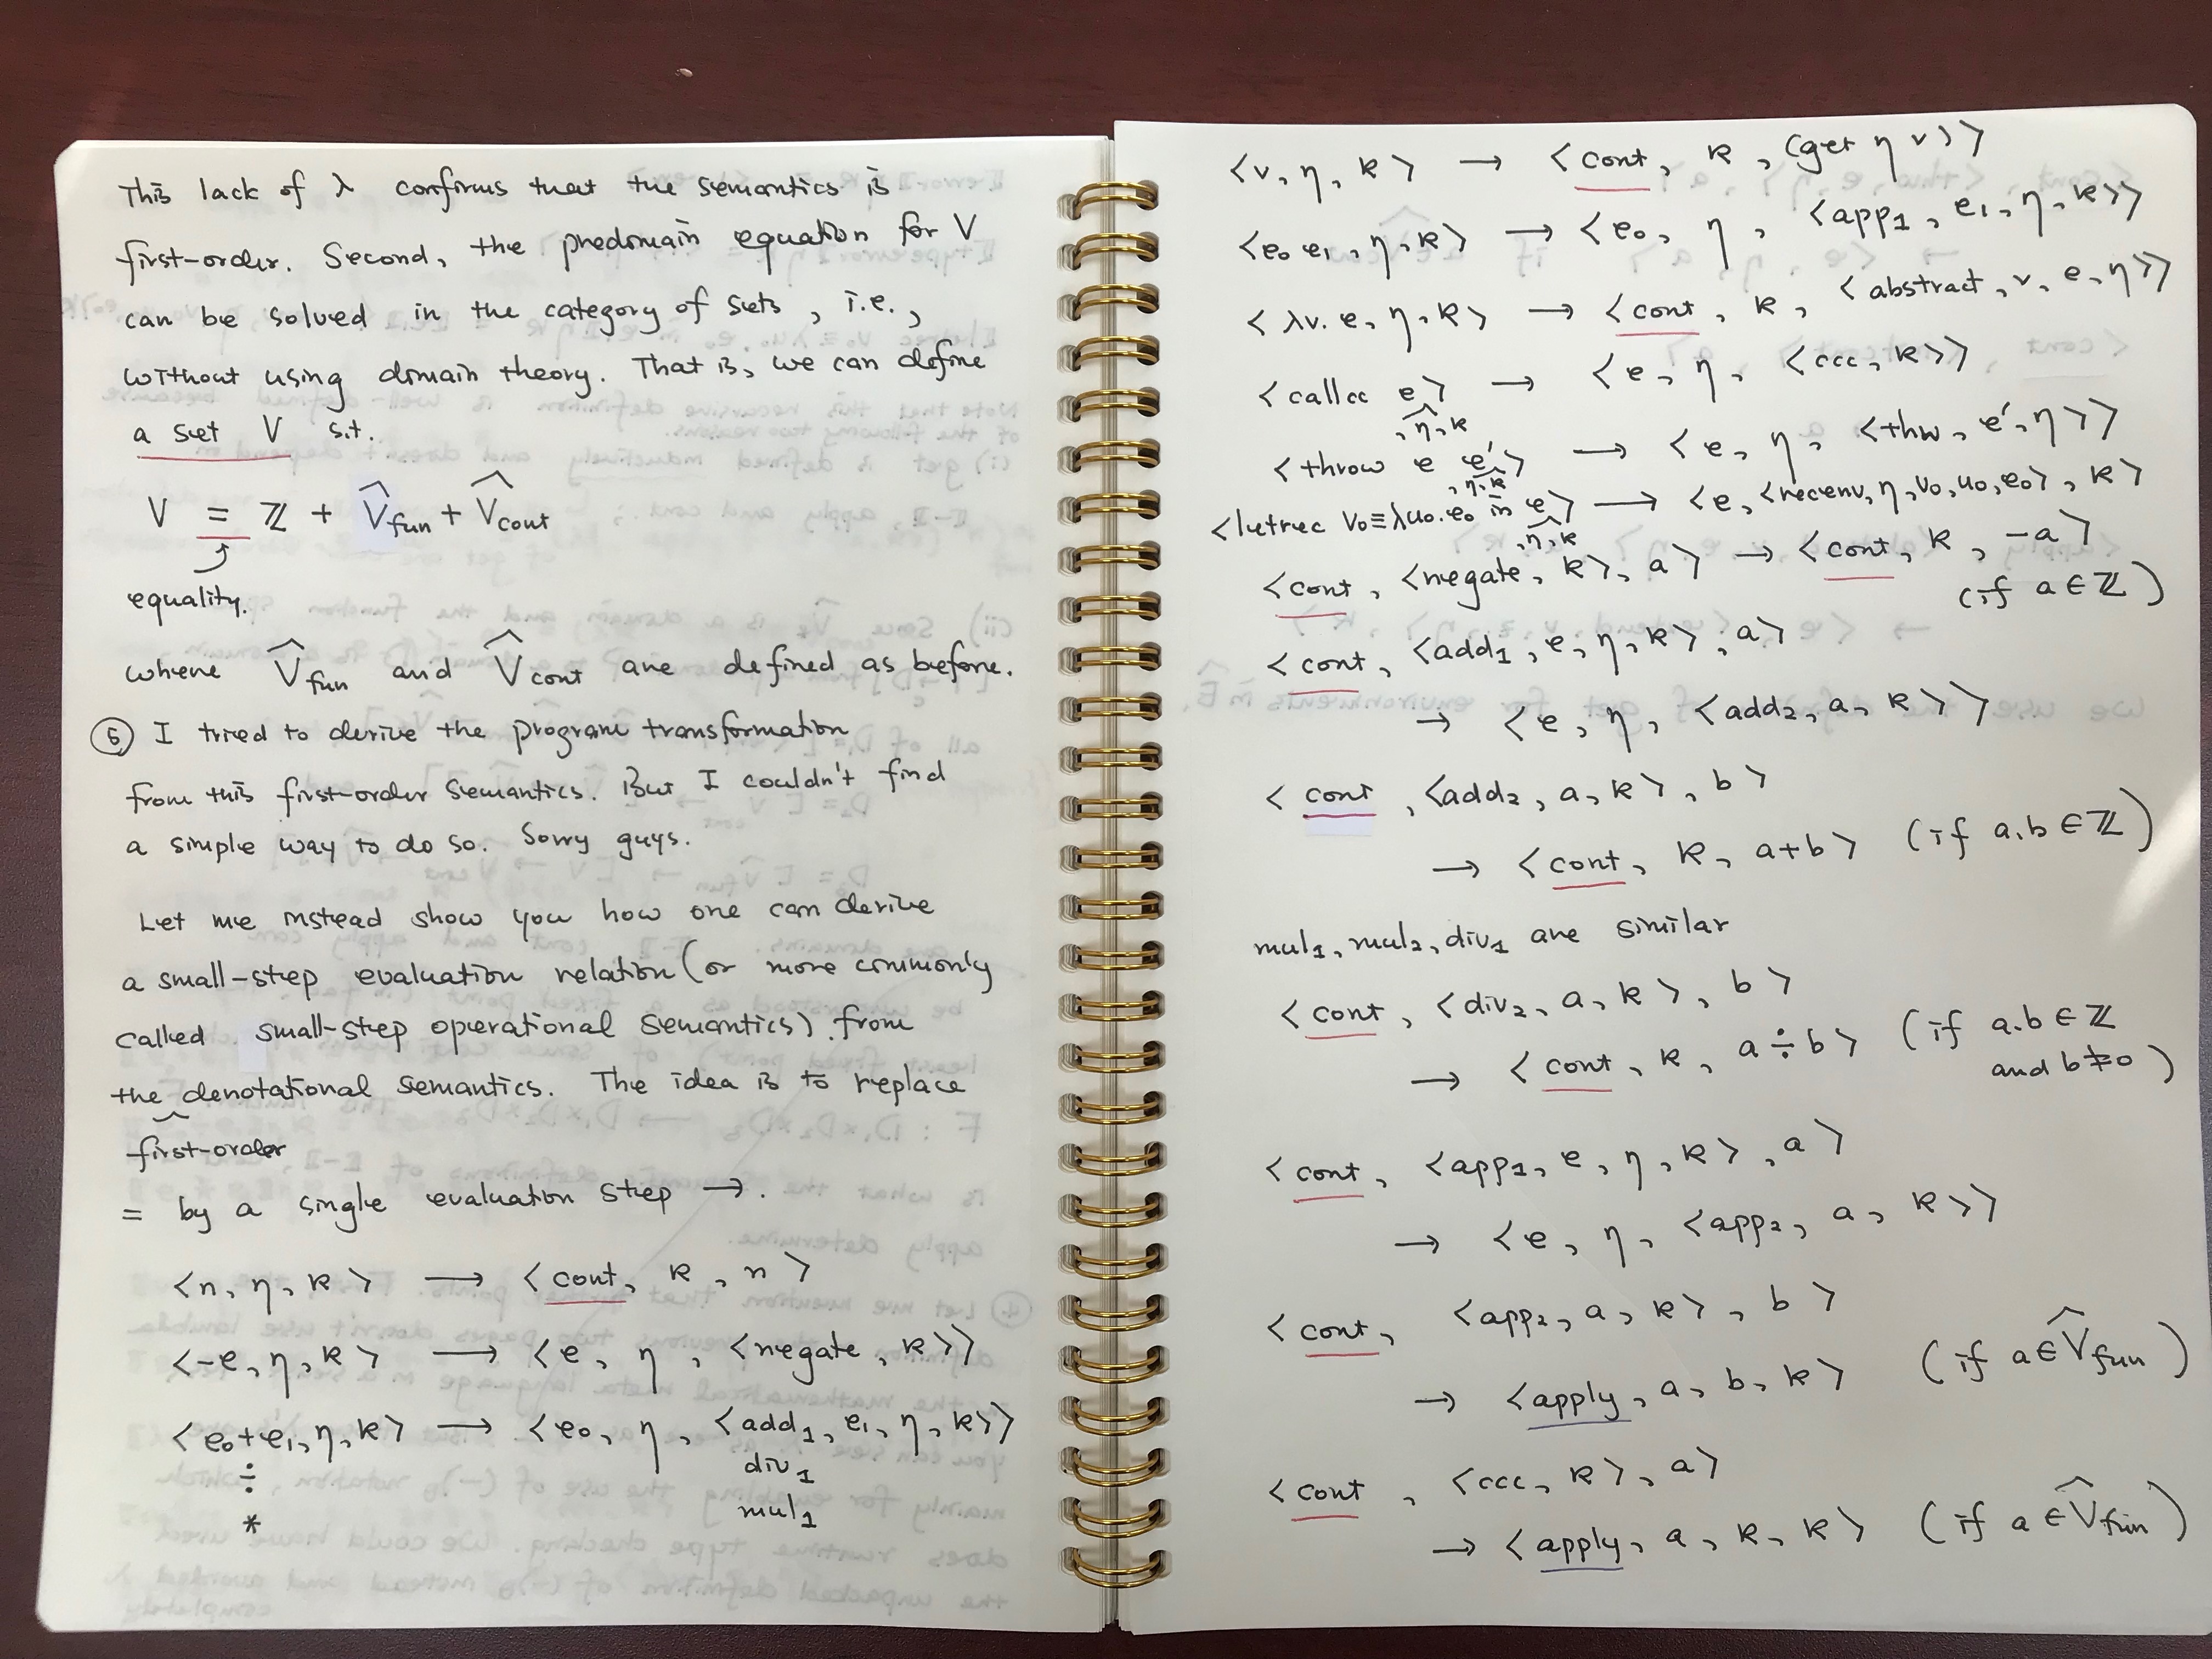 This lack of λ confirms that the semantics is
first-order. Second, the predomain equation for V
can be solved in the category of sets, i.e.,
without using domain theory. That is, we can define
a set V s.t.
V = ℤ + V̂fun + V̂cont
equality.
where V̂fun and V̂cont are defined as before.
⑤ I tried to derive the program transformation
from this first-order semantics. But I couldn't find
a simple way to do so. Sorry guys.
Let me instead show you how one can derive
a small-step evaluation relation (or more commonly
called small-step operational semantics) from
the denotational semantics. The idea is to replace
first-order
= by a single evaluation step →.
<n, η, k> → <cont, k, n>
<-e, η, k> → <e, η, <negate, k>>
<e₀+e₁, η, k> → <e₀, η, <add₁, e₁, η, k>>
÷ div₁
* mul₁
<v, η, k> → <cont, k, (get η v)>
<e₀ e₁, η, k> → <e₀, η, <app₁, e₁, η, k>>
<λv. e, η, k> → <cont, k, <abstract, v, e, η>>
<callcc e> → <e, η, <ccc, k>>
, η, k
<throw e e'> → <e, η, <thw, e', η>>
, η, k
<letrec v₀≡λu₀.e₀ in e> → <e, <recenv, η, v₀, u₀, e₀>, k>
, η, k
<cont, <negate, k>, a> → <cont, k, -a>
(if a∈ℤ)
<cont, <add₁, e, η, k>, a>
→ <e, η, <add₂, a, k>>
<cont, <add₂, a, k>, b>
→ <cont, k, a+b> (if a,b∈ℤ)
mul₁, mul₂, div₁ are similar
<cont, <div₂, a, k>, b>
→ <cont, k, a÷b> (if a,b∈ℤ
and b≠0)
<cont, <app₁, e, η, k>, a>
→ <e, η, <app₂, a, k>>
<cont, <app₂, a, k>, b>
→ <apply, a, b, k> (if a∈V̂fun)
<cont, <ccc, k>, a>
→ <apply, a, k, k> (if a∈V̂fun)